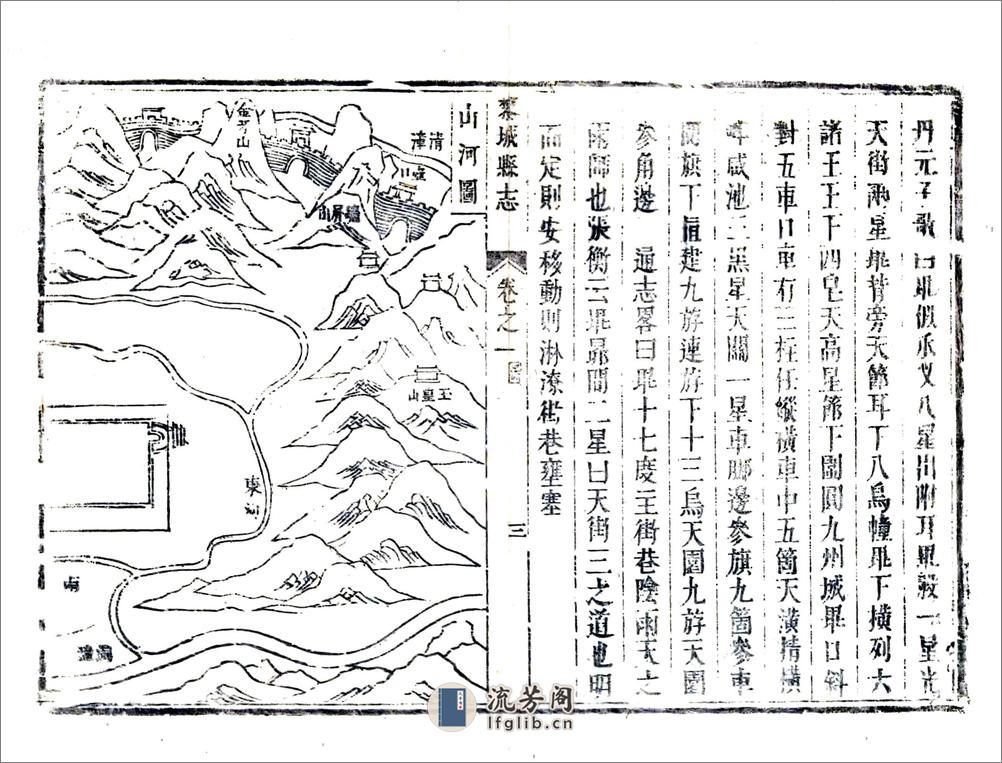 丹元子歌曰畢似爪叉八星出附耳畢股一星光
天街兩星畢背旁天節耳下八烏幢畢下橫列六
諸王王下四皂天高星節下團圓九州城畢口斜
對五車口車有三柱任縱橫車中五箇天潢精潢
畔咸池三黑星天關一星車脚邊參旗九箇參車
間旗下直建九斿連斿下十三烏天園九斿天園
參角邊 通志畧曰畢十七度主街巷陰雨天之
雨師也張衡云畢昴間二星曰天街三之道也明
而定則安移動則淋潦街巷壅塞
城縣志
卷之一
三
山河圖
清漳
山
壺口
屏山
玉皇山
東
南
濁漳
流芳阁
lfglib.cn